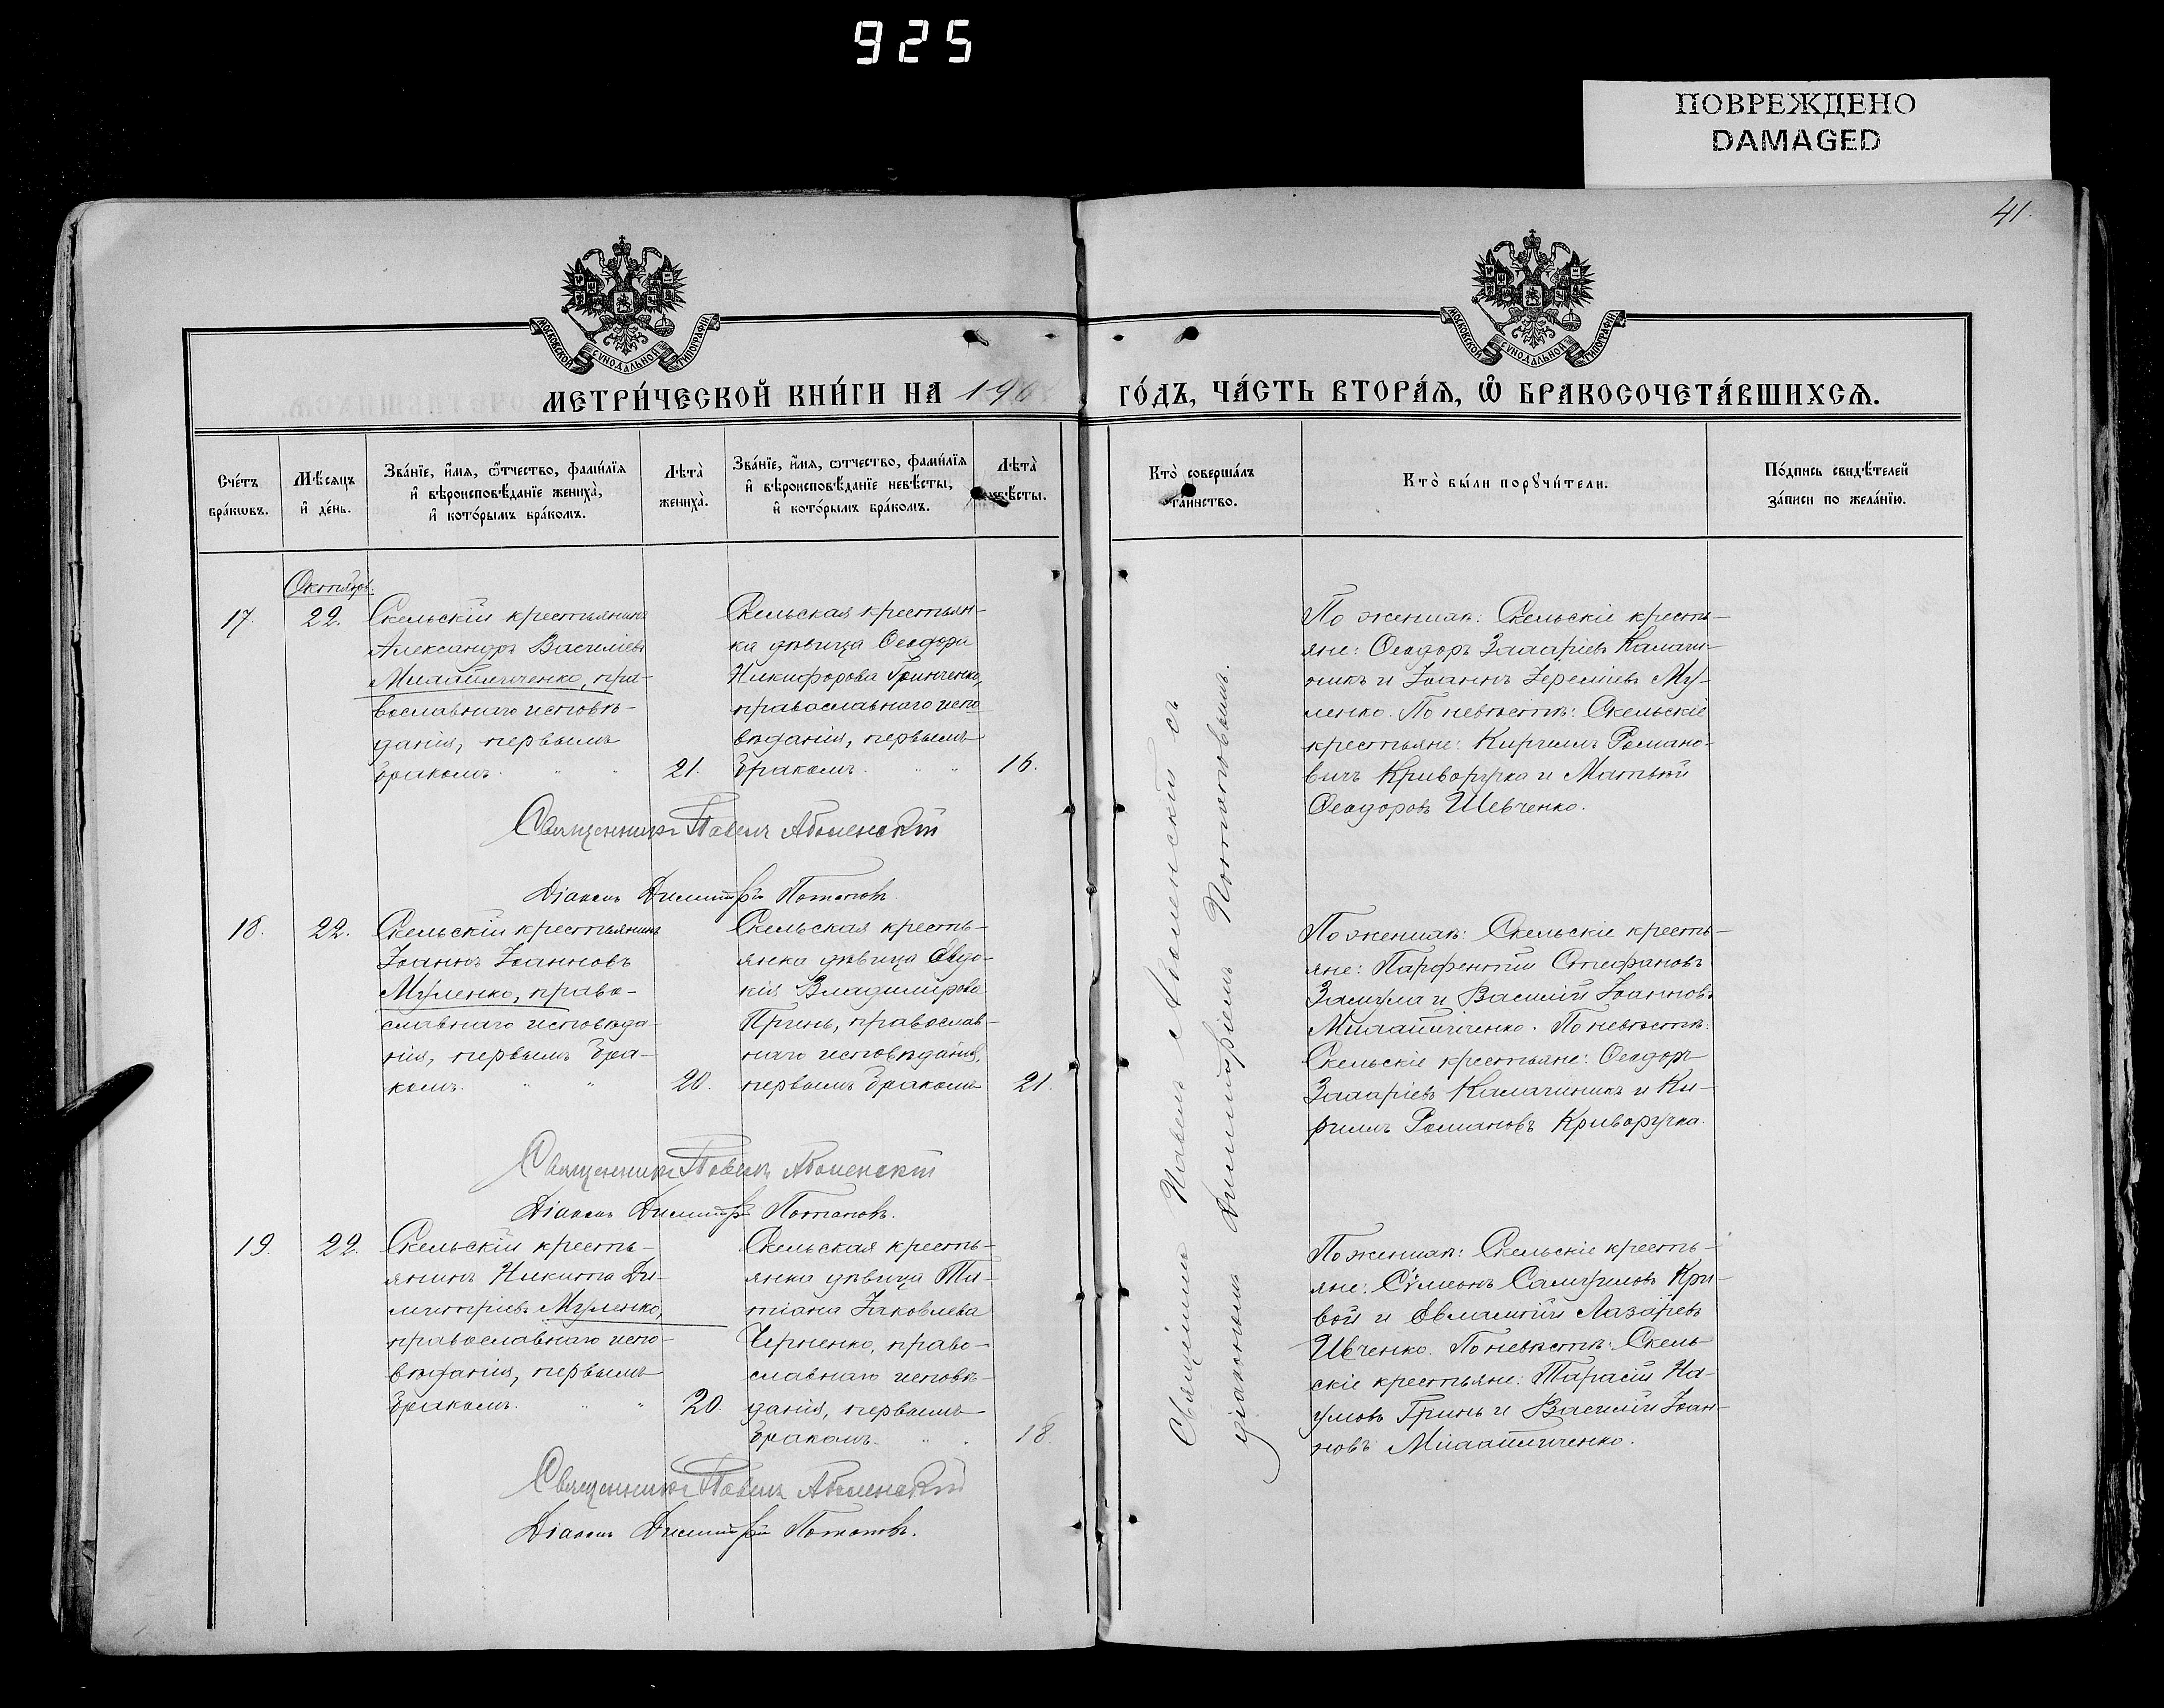 925
ПОВРЕЖДЕНО
DAMAGED
41.
МОСКОВСКОЙ СѴНОДАЛЬНОЙ ТИПОГРАФІИ
МОСКОВСКОЙ СѴНОДАЛЬНОЙ ТИПОГРАФІИ
МЕТРИ́ЧЕСКОЙ КНИ́ГИ НА 190
ГО́ДЪ, ЧА́СТЬ ВТОРА́Ѧ, Ѽ БРАКОСОЧЕТА́ВШИХСѦ.
Сче́тъ бра́кѡвъ.
Мѣ́сяцъ и҆ де́нь.
Зва́нїе, и҆́мѧ, ѻ҆́тчество, фами́лїѧ
и҆ вѣроисповѣ́данїе жениха̀,
и҆ кото́рымъ бра́комъ.
Лѣта̀ жениха̀.
Зва́нїе, и҆́мѧ, ѻ҆́тчество, фами́лїѧ
и҆ вѣроисповѣ́данїе невѣ́сты,
и҆ кото́рымъ бра́комъ.
Лѣта̀ невѣ́сты.
Кто̀ соверша́лъ таинство.
Кто̀ бы́ли порꙋчи́тели.
По́дпись свидѣ́телей
за́писи по жела́нїю.
Октябрь.
17.
22.
Скельскій крестьянинъ
Александръ Василіевъ
пра-
вославнаго исповѣ-
данія, первымъ
бракомъ.
21.
Скельская крестьян-
ка дѣвица Ѳеодора
Никифорова Гринченко,
православнаго испо-
вѣданія, первымъ
бракомъ.
16.
По женихѣ: Скельскіе кресть-
яне: Ѳеодоръ Захаріевъ Калаш-
никъ и Іоаннъ Іереміевъ Му-
ленко. По невѣстѣ: Скельскіе
крестьяне: Кириллъ Романо-
вичъ Криворучка и Матѳій
Ѳеодоровъ Шевченко.
Священникъ Павелъ
Діаконъ Димитрій Потаповъ.
18.
22.
Скельскій крестьянинъ
Іоаннъ Іоанновъ
Муленко, право-
славнаго исповѣда-
нія, первымъ бра-
комъ.
20.
Скельская кресть-
янка дѣвица Евдо-
кія Владимірова
Гринь, православ-
наго исповѣданія,
первымъ бракомъ
21.
По женихѣ: Скельскіе кресть-
яне: Парѳеній Стефановъ
и Василій Іоанновъ
По невѣстѣ:
Скельскіе крестьяне: Ѳеодоръ
Захаріевъ Калашникъ и Ки-
риллъ Романовъ Криворучка.
Священникъ Павелъ
Діаконъ Димитрій Потаповъ.
19.
22.
Скельскій кресть-
янинъ Никита Ди-
митріевъ Муленко,
православнаго испо-
вѣданія, первымъ
бракомъ.
20.
Скельская кресть-
янка дѣвица Та-
тіана Іаковлева
Черненко, право-
славнаго исповѣ-
данія, первымъ
бракомъ.
18.
По женихѣ: Скельскіе кресть-
яне: Сѵмеонъ Самуиловъ Кри-
вой и Евлампій Лазаревъ
Ивченко. По невѣстѣ: Скель-
скіе крестьяне: Тарасій На-
умовъ Гринь и Василій Іоан-
новъ
Священникъ Павелъ
Діаконъ Димитрій Потаповъ.
Священникъ Павелъ съ
діакономъ Димитріемъ Потаповымъ.